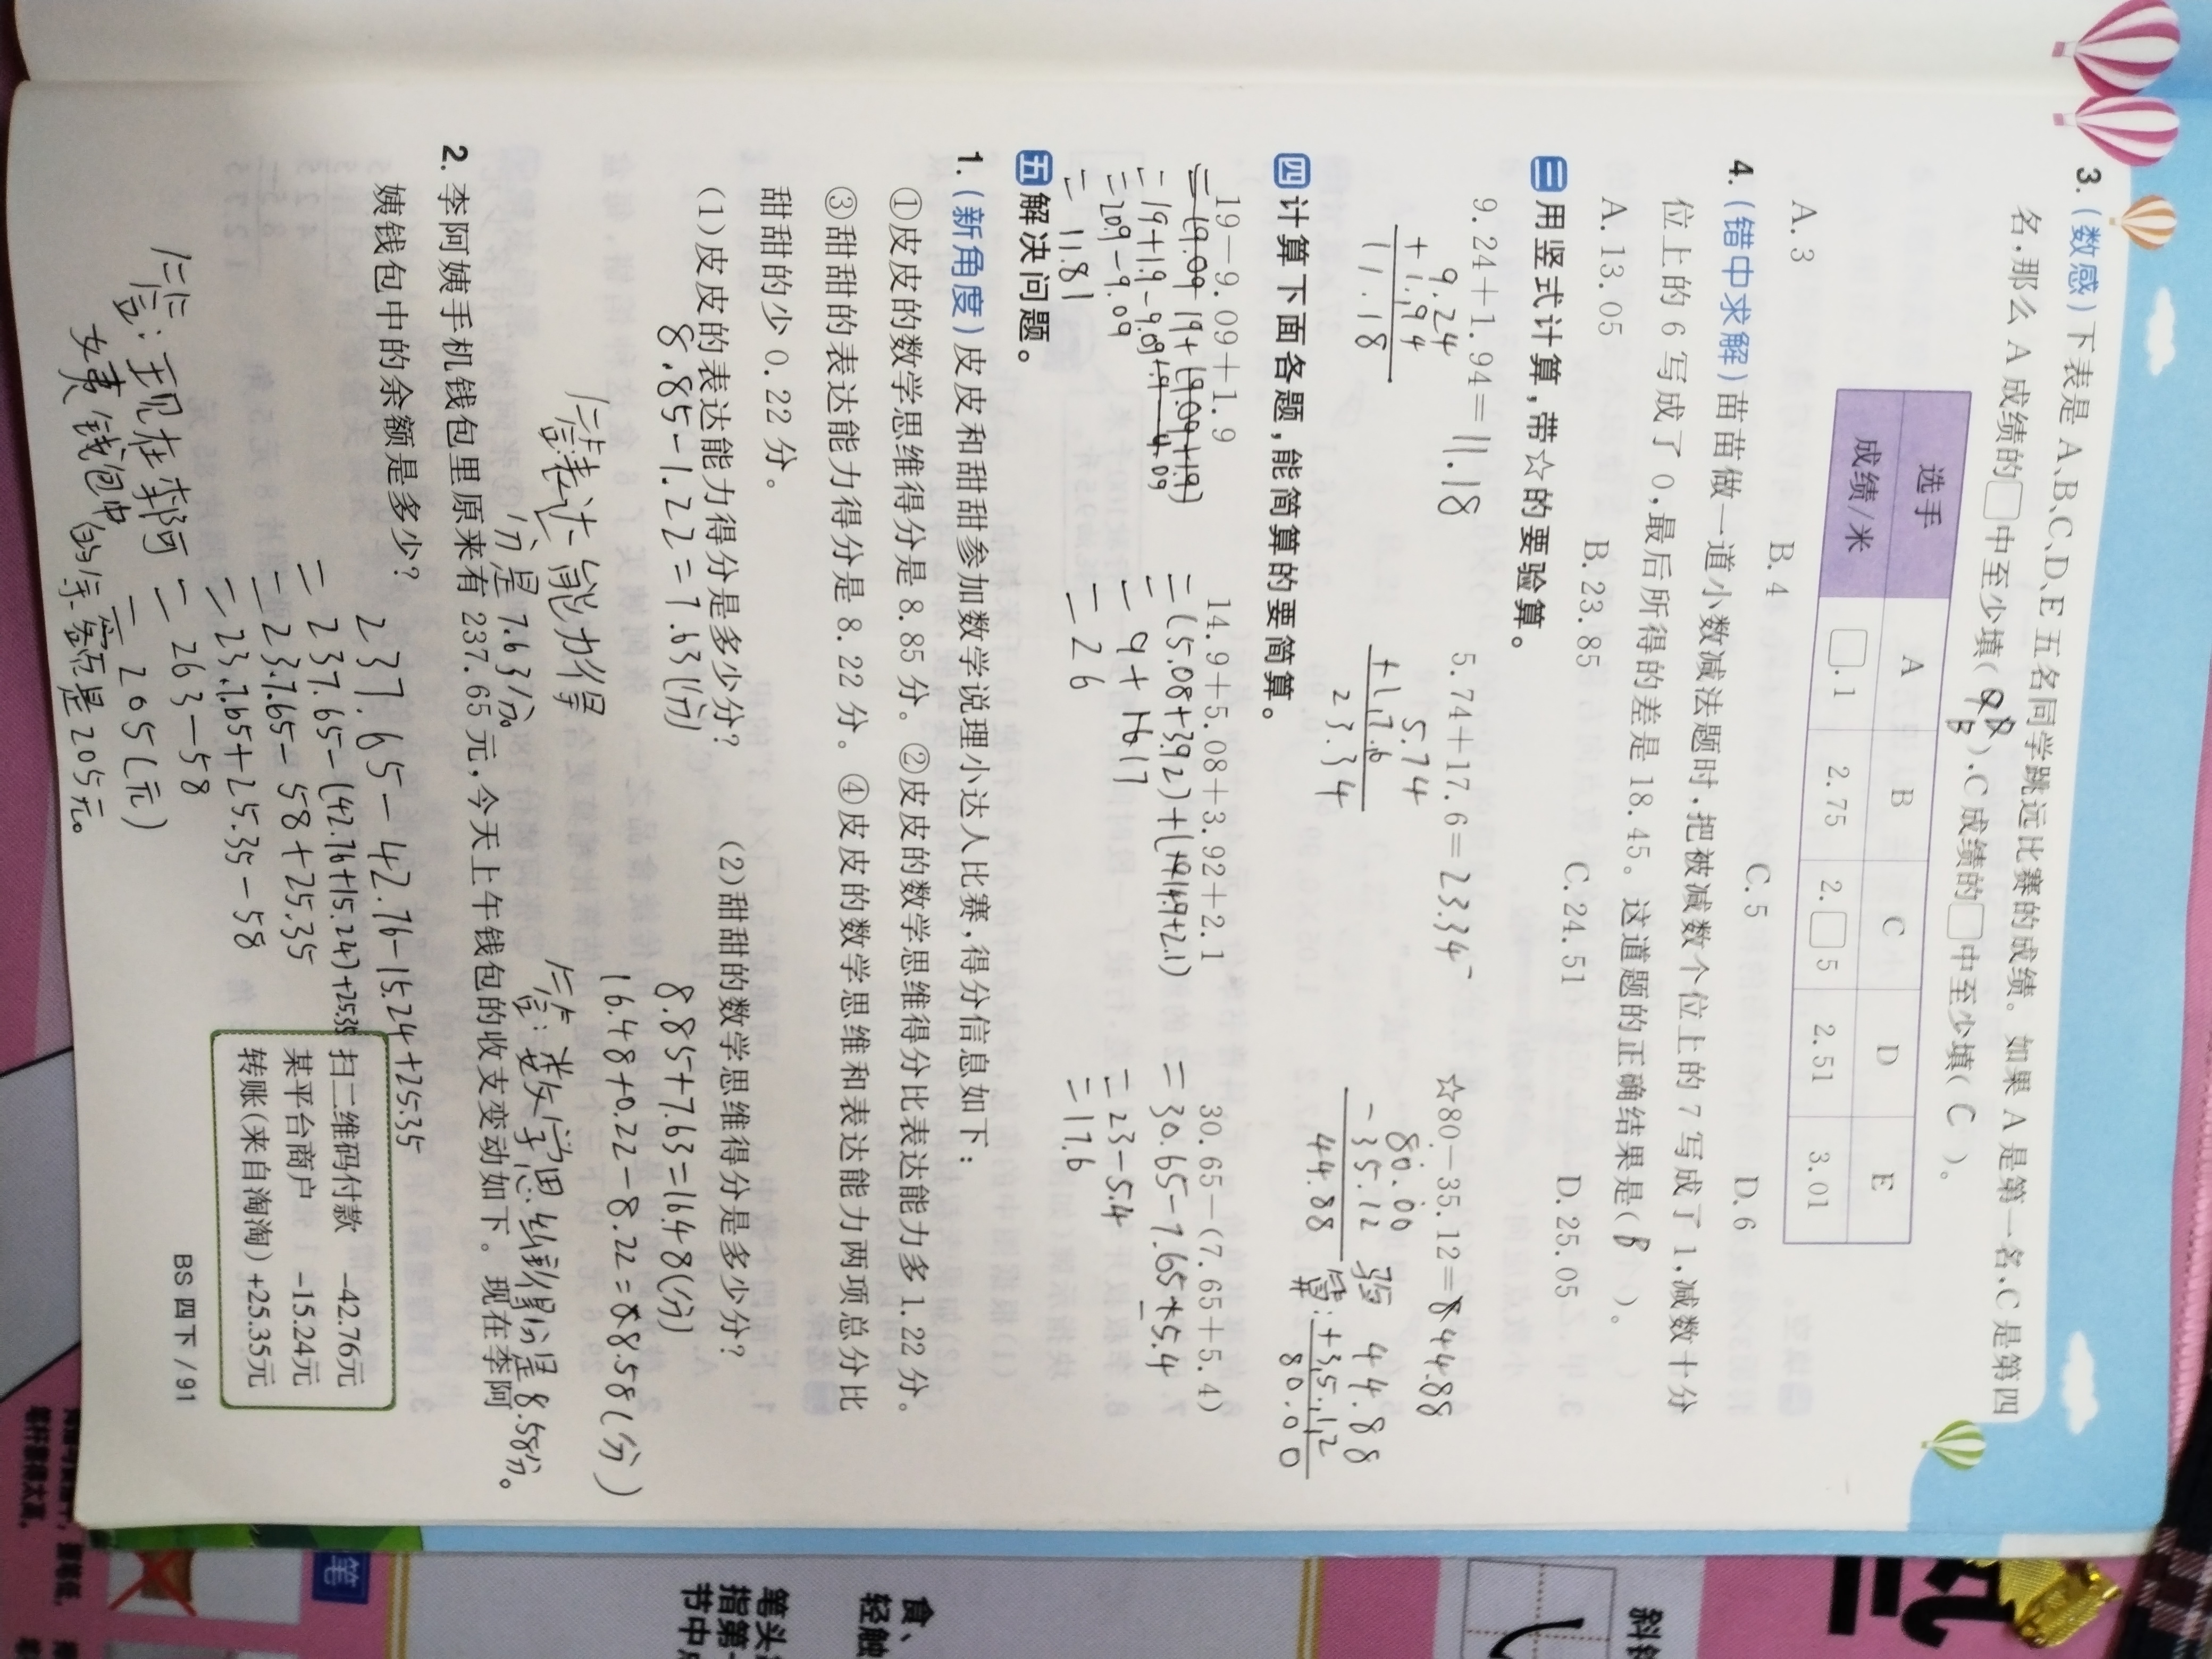 3.(数感)下表是A、B、C、D、E五名同学跳远比赛的成绩。如果A是第一名、C是第四
名,那么A成绩的□中至少填( B ),C成绩的□中至少填( C )。
选手 A B C D E
成绩/米 □.1 2.75 2.□5 2.51 3.01
A. 3 B. 4 C. 5 D. 6
4.(错中求解)苗苗做一道小数减法题时,把被减数个位上的7写成了1,减数十分
位上的6写成了0,最后所得的差是18.45。这道题的正确结果是( B )。
A. 13.05 B. 23.85 C. 24.51 D. 25.05
三 用竖式计算,带☆的要验算。
9.24+1.94=11.18 5.74+17.6=23.34 ☆80-35.12=44.88
9.24 5.74 80.00 验 44.88
+1.94 +17.6 -35.12 算:+35.12
11.18 23.34 44.88 80.00
四 计算下面各题,能简算的要简算。
19-9.09+1.9 14.9+5.08+3.92+2.1 30.65-(7.65+5.4)
=19+1.9-9.09 =(5.08+3.92)+(14.9+2.1) =30.65-7.65+5.4
=20.9-9.09 =9+17 =23-5.4
=11.81 =26 =17.6
五 解决问题。
1.(新角度)皮皮和甜甜参加数学说理小达人比赛,得分信息如下:
①皮皮的数学思维得分是8.85分。②皮皮的数学思维得分比表达能力多1.22分。
③甜甜的表达能力得分是8.22分。④皮皮的数学思维和表达能力两项总分比
甜甜的少0.22分。
(1)皮皮的表达能力得分是多少分? (2)甜甜的数学思维得分是多少分?
8.85-1.22=7.63(分) 8.85+7.63=16.48(分)
16.48+0.22-8.22=8.58(分)
答:表达能力得
分是7.63分。
答:数学思维得分是8.58分。
2.李阿姨手机钱包里原来有237.65元,今天上午钱包的收支变动如下。现在李阿
姨钱包中的余额是多少?
237.65-42.76-15.24+25.35
=237.65-(42.76+15.24)+25.35
=237.65-58+25.35
=237.65+25.35-58
=263-58
=205(元)
扫二维码付款 -42.76元
某平台商户 -15.24元
转账(来自淘淘) +25.35元
答:现在李阿
姨钱包中的余额是205元。
BS 四下/91
笔